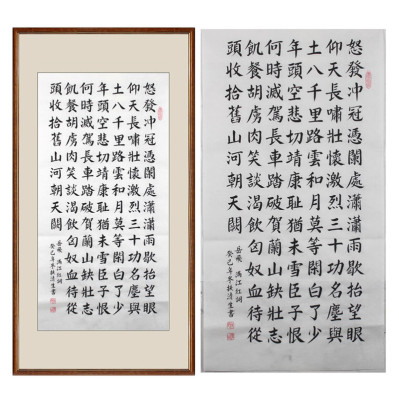 怒發冲冠憑闌處瀟瀟雨歇抬望眼
仰天長嘯壯懷激烈三十功名塵與
土八千里路雲和月莫等閑白了少
年頭空悲切靖康耻猶未雪臣子恨
何時滅駕長車踏破賀蘭山缺壯志
飢餐胡虜肉笑談渴飲匈奴血待從
頭收拾舊山河朝天闕
岳飛 滿江红詞
癸巳年冬
怒發冲冠憑闌處瀟瀟雨歇抬望眼
仰天長嘯壯懷激烈三十功名塵與
土八千里路雲和月莫等閑白了少
年頭空悲切靖康耻猶未雪臣子恨
何時滅駕長車踏破賀蘭山缺壯志
飢餐胡虜肉笑談渴飲匈奴血待從
頭收拾舊山河朝天闕
岳飛 滿江红詞
癸巳年冬